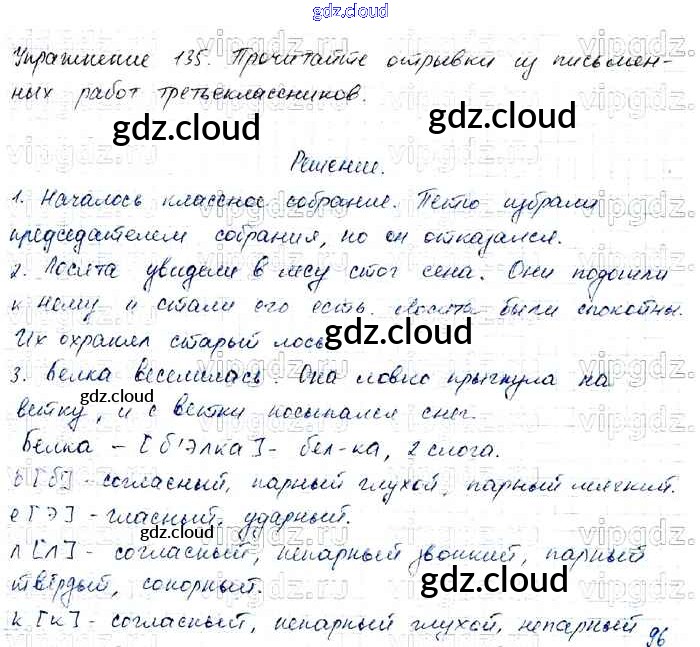 gdz.cloud
Упражнение 135. Прочитайте отрывки из письмен-
ных работ третьеклассников.
gdz.cloud
gdz.cloud
Решение.
1. Началось классное собрание. Петю избрали
председателем собрания, но он отказался.
2. Лосята увидели в лесу стог сена. Они подошли
к нему и стали его есть. Лосята были спокойны.
Их охранял старый лось.
gdz.cloud
3. Белка веселилась. Она ловко прыгнула на
ветку, и с ветки посыпался снег.
gdz.cloud
Белка – [б'элка] - бел-ка, 2 слога.
б [б'] - согласный, парный глухой, парный мягкий.
е [э] - гласный, ударный.
gdz.cloud
л [л] - согласный, непарный звонкий, парный
твёрдый, сонорный.
gdz.cloud
к [к] - согласный, непарный глухой, непарный
96